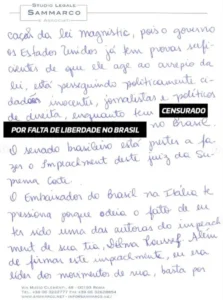 STUDIO LEGALE
SAMMARCO
ASSOCIATI
cação da lei magnistic, pois o governo
os Estados Unidos já tem provas sufi-
cientes de que ele age ao arrepio da
lei, está perseguindo politicamente ci-
dadãos inocentes, jornalistas e políticos
de direita, enquanto tem CENSURADO
POR FALTA DE LIBERDADE NO BRASIL no Brasil.
O senado brasileiro está prestes a fa-
zer o Impeachment deste juiz da Su-
prema Corte.
O Embaixador do Brasil na Itália te
pressiona porque odeia o fato de eu
ter sido uma das autoras do impeach-
ment de sua tia, Dilma Roussef. Além
de firmar este impeachment, eu era
líder dos movimentos de rua, havia por